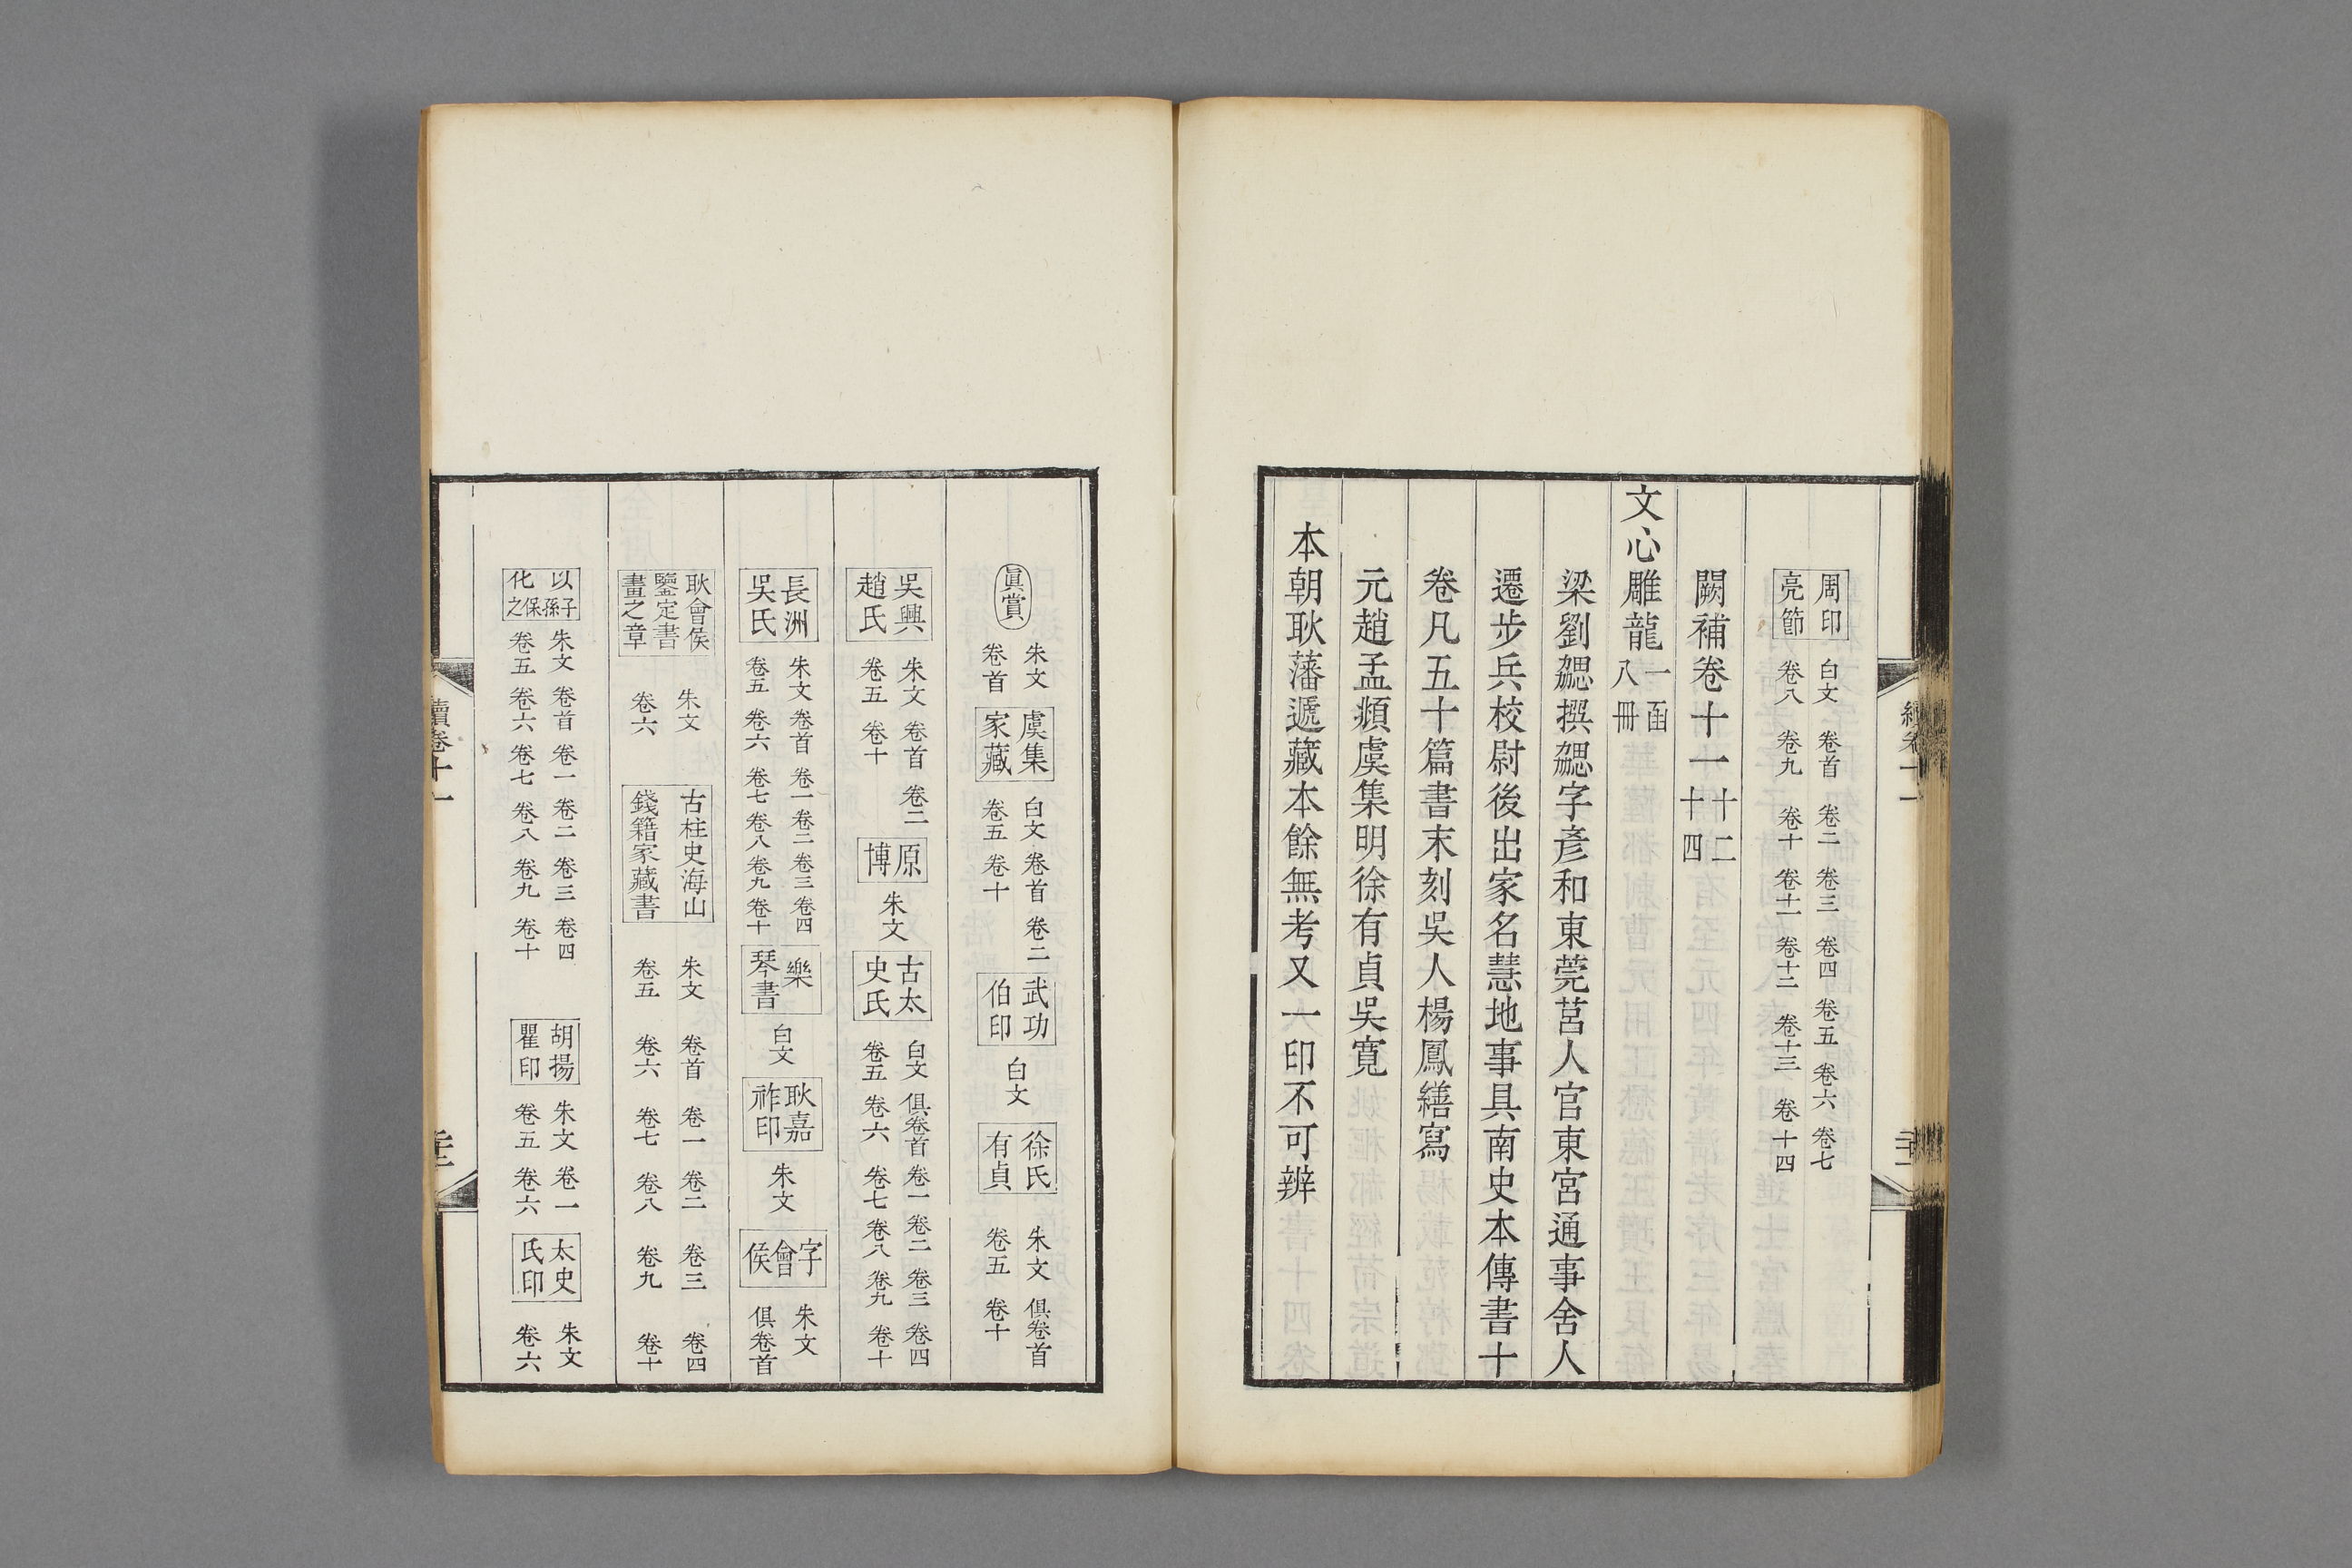 周印亮節 白文 卷首 卷二 卷三 卷四 卷五 卷六 卷七
卷八 卷九 卷十 卷十一 卷十二 卷十三 卷十四
闕補卷十一 十二 十四
文心雕龍 一函 八冊
梁劉勰撰勰字彥和東莞莒人官東宮通事舍人
遷步兵校尉後出家名慧地事具南史本傳書十
卷凡五十篇書末刻吳人楊鳳繕寫
元趙孟頫虞集明徐有貞吳寬
本朝耿藩遞藏本餘無考又一印不可辨
眞賞 朱文 卷首 虞集家藏 白文 卷首 卷二 卷五 卷十 武功伯印 白文 徐氏有貞 朱文 俱卷首 卷五 卷十
吳興趙氏 朱文 卷首 卷二 卷五 卷十 原博 朱文 古太史氏 白文 俱卷首 卷一 卷二 卷三 卷四 卷五 卷六 卷七 卷八 卷九 卷十
長洲吳氏 朱文 卷首 卷一 卷二 卷三 卷四 卷五 卷六 卷七 卷八 卷九 卷十 樂琴書 白文 耿嘉祚印 朱文 字會侯 朱文 俱卷首
耿會侯鑒定書畫之章 朱文 卷六 古柱史海山錢籍家藏書 朱文 卷首 卷一 卷二 卷三 卷四 卷五 卷六 卷七 卷八 卷九 卷十
以子孫保之化 朱文 卷首 卷一 卷二 卷三 卷四 卷五 卷六 卷七 卷八 卷九 卷十 胡揚瞿印 朱文 卷一 卷五 卷六 太史氏印 朱文 卷六
續卷十一